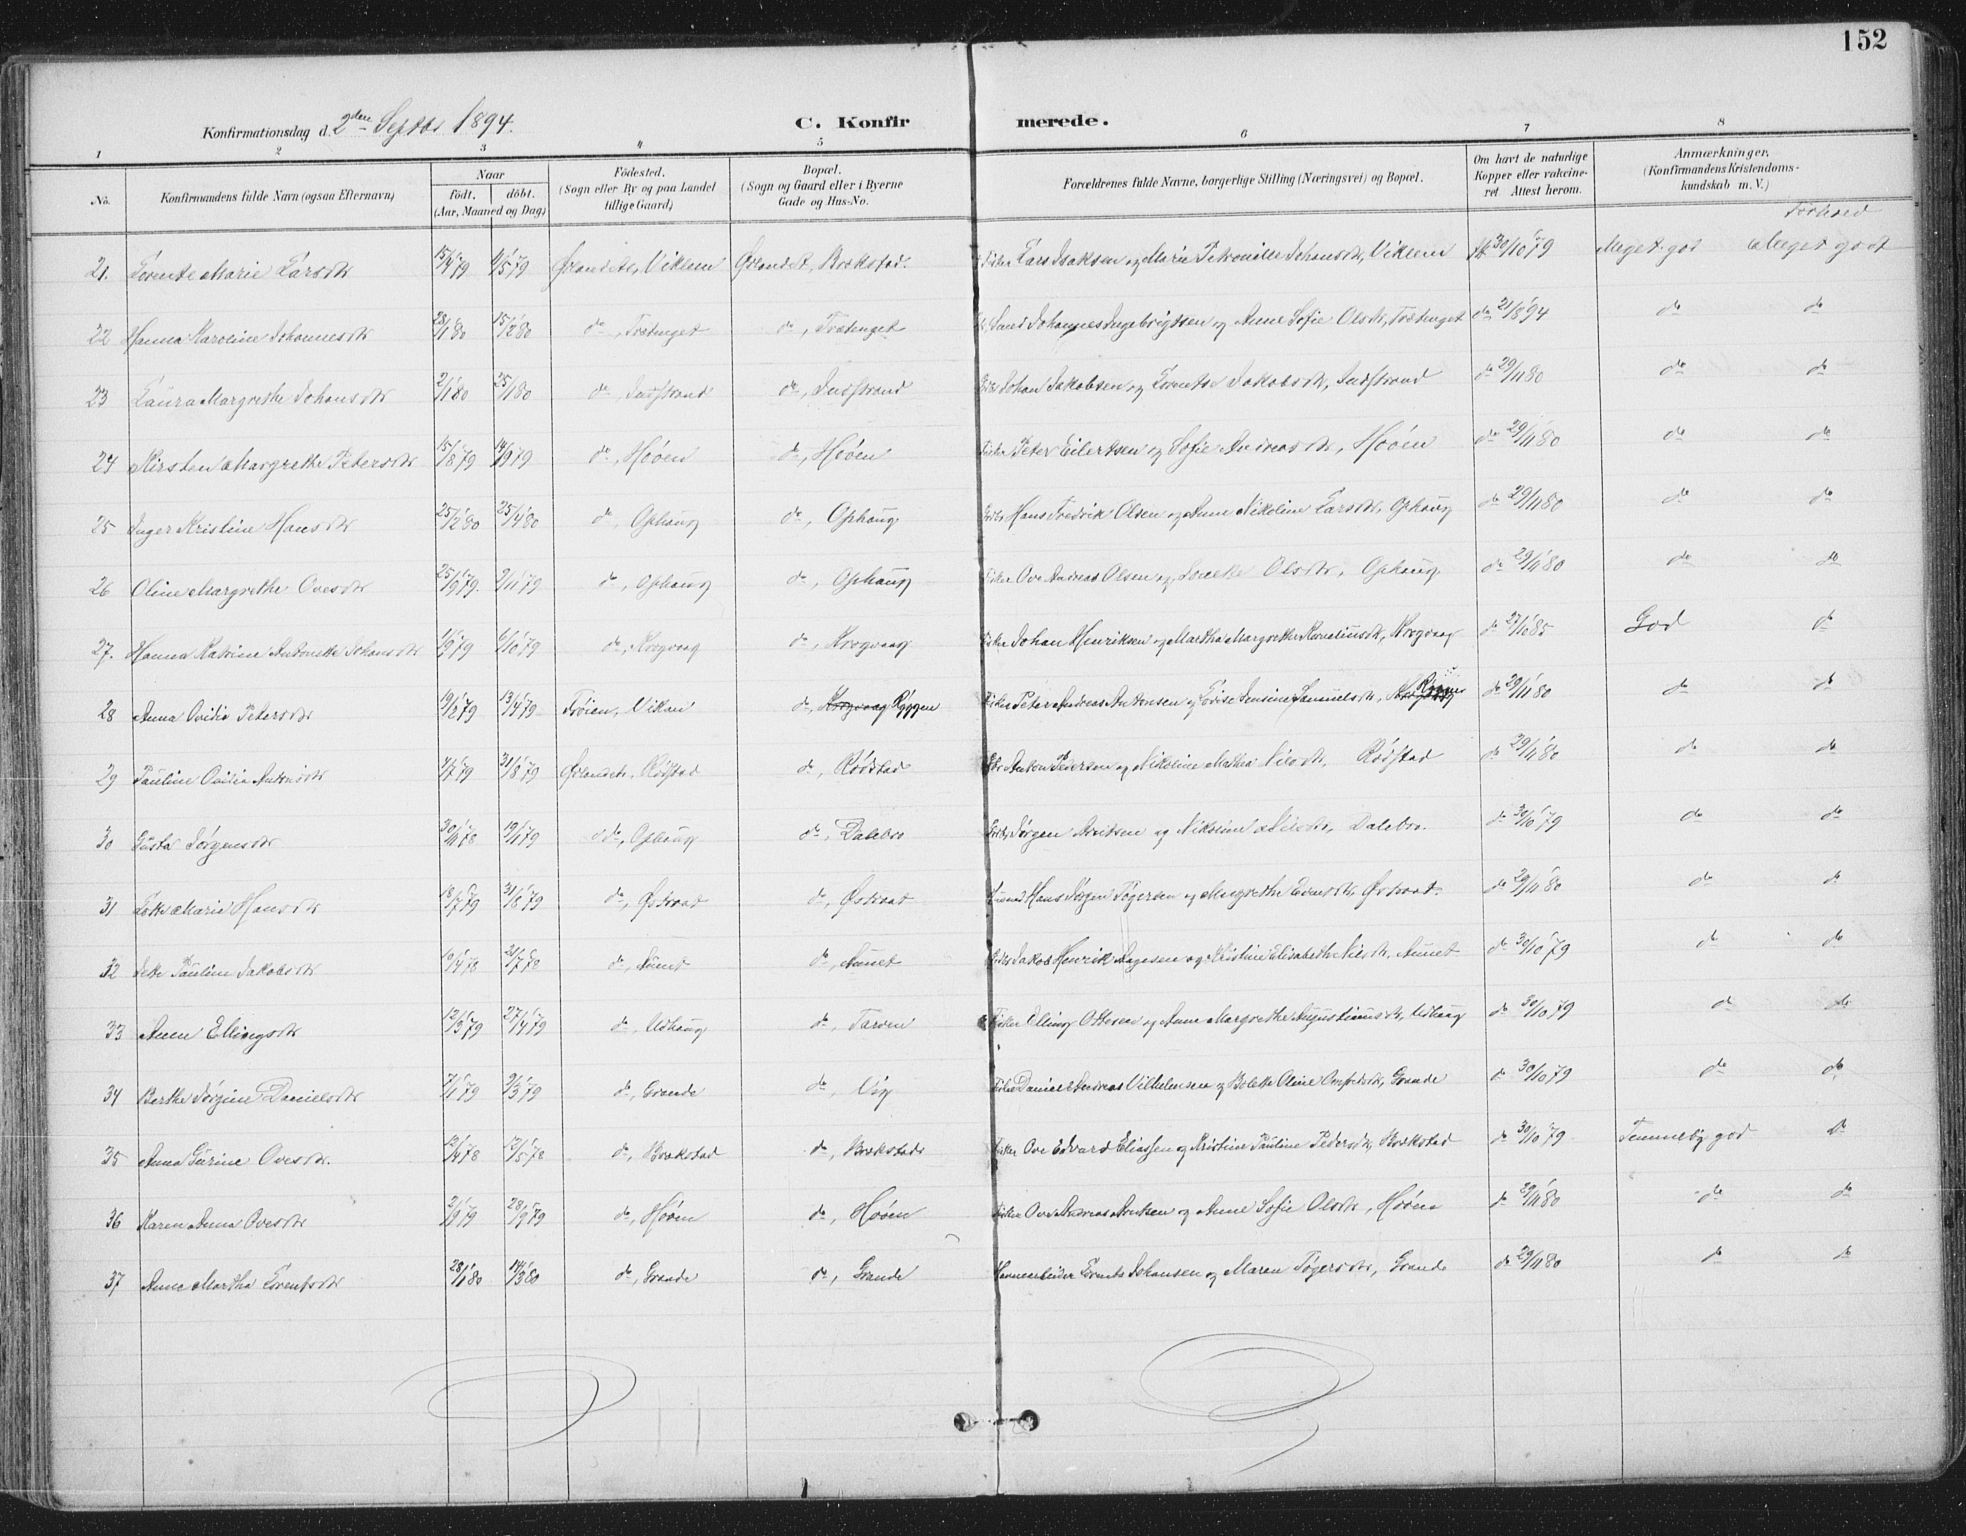 152
Konfirmationsdag d. 2den Septbr 1894.
C. Konfirmerede.
1 2 3 4 5 6 7 8
No.
Konfirmandens fulde Navn (ogsaa Efternavn)
Naar
født, døbt.
(Aar, Maaned og Dag)
Fødested.
(Sogn eller By og paa Landet
tillige Gaard)
Bopæl.
(Sogn og Gaard eller i Byerne
Gade og Hus-No.
Forældrenes fulde Navne, borgerlige Stilling (Næringsvei) og Bopæl.
Om havt de naturlige
Kopper eller vakcine-
ret Attest herom.
Anmærkninger.
(Konfirmandens Kristendoms-
kundskab m. V.)
Forhold
21. Lorentse Marie Larsdtr 15/4 79 4/5 79 Ørlandet, Viklem Ørlandet, Brækstad. Lars Isaksen og Marie Petronille Johansdtr, Viklem 30/10 79 Meget god Meget godt
22 Hanna Karoline Johannesdtr 28/1 80 15/2 80 do, Trætenget do, Trætenget Johannes Ingebrigtsen og Anne Sofie Olsdtr, Trætenget do 21/8 94 do do
23 Laura Margrethe Johansdtr 2/1 80 25/1 80 do, Indstrand do, Indstrand Johan Jakobsen og Lorentse Jakobsdtr, Indstrand do 29/11 80 do do
24 Kirsten Margrethe Petersdtr 15/8 79 14/9 79 do, Hoøen do, Hoøen Fisker Peter Eilertsen og Sofie Andreasdtr, Hoøen do 29/11 80 do do
25 Inger Kristine Hansdtr 25/2 80 25/4 80 do, Ophaug do, Ophaug Hans Fredrik Olsen og Anne Nikoline Larsdtr, Ophaug do 29/11 80 do do
26 Oline Margrethe Ovesdtr 25/9 79. 9/11 79 do, Ophaug do, Ophaug Fisker Ove Andreas Olsen og Olsdtr, Ophaug do 29/11 80 do do
27. Hanna Katrine Antonette Johansdtr 1/9 79 6/10 79 do, Krogvaag do, Krogvaag Fisker Johan Henriksen og Martha Margrethe Korneliusdtr, Krogvaag do 27/10 85 God do
28 Anna Ovidia Petersdtr 19/2 79 13/4 79 Frøien, Vikan do, Krogvaag Ryggen Fisker Peter Andreas Antonsen og Lovise Jensine Samuelsdtr, Ryggen do 29/11 80 do do
29 Pauline Ovidia Antonsdtr 7/7 79 31/8 79 Ørlandet, Rødstad do, Rødstad Anton Pedersen og Nikoline Martha Nilsdtr, Rødstad do 29/11 80 do do
30 Gusta Jørgensdtr 30/11 78 19/1 79 do, Ophaug do, Dalebro Jørgen Arntsen og Nikoline Nilsdtr, Dalebro. do 30/10 79 do do
31 Marie Hansdtr 18/7 79 31/8 79 do, Østraat do, Østraat Hans Jørgen Tøgersen og Margrethe Evensdtr, Østraat do 29/11 80 do do
32 Pauline Jakobsdtr 10/4 78 21/7 78 do, Aunet do, Aunet Jakob Henrik Aagesen og Kristine Elisabeth Nilsdtr, Aunet do 30/10 79 do do
33 Anne Ellingsdtr 12/3 79 27/4 79 do, Udhaug do, Tarven Fisker Elling Ottesen og Anne Margrethe Augustinusdtr, Udhaug do 30/10 79 do do
34 Berthe Jørgine Danielsdtr 7/1 79 9/3 79 do, Grande do, Uig Fisker Daniel Andreas Vilhelmsen og Bolette Oline Arnfindsdtr, Grande do 30/10 79 do do
35 Anna Gurine Ovesdtr. 12/4 78 12/5 78 do, Brækstad do, Brækstad Fisker Ove Edvard Eliassen og Kristine Pauline Pedersdtr, Brækstad do 30/10 79 Temmelig god do
36 Karen Anna Ovesdtr 2/9 79 28/9 79 do, Hoøen do, Hoøen Fisker Ove Andreas Arntsen og Anne Sofie Olsdtr, Hoøen do 29/11 80 do do
37 Anne Martha Lorentsdtr 28/1 80 14/3 80 do, Grande do, Grande Lorents Johansen og Maren Tøgersdtr, Grande do 29/11 80 do do